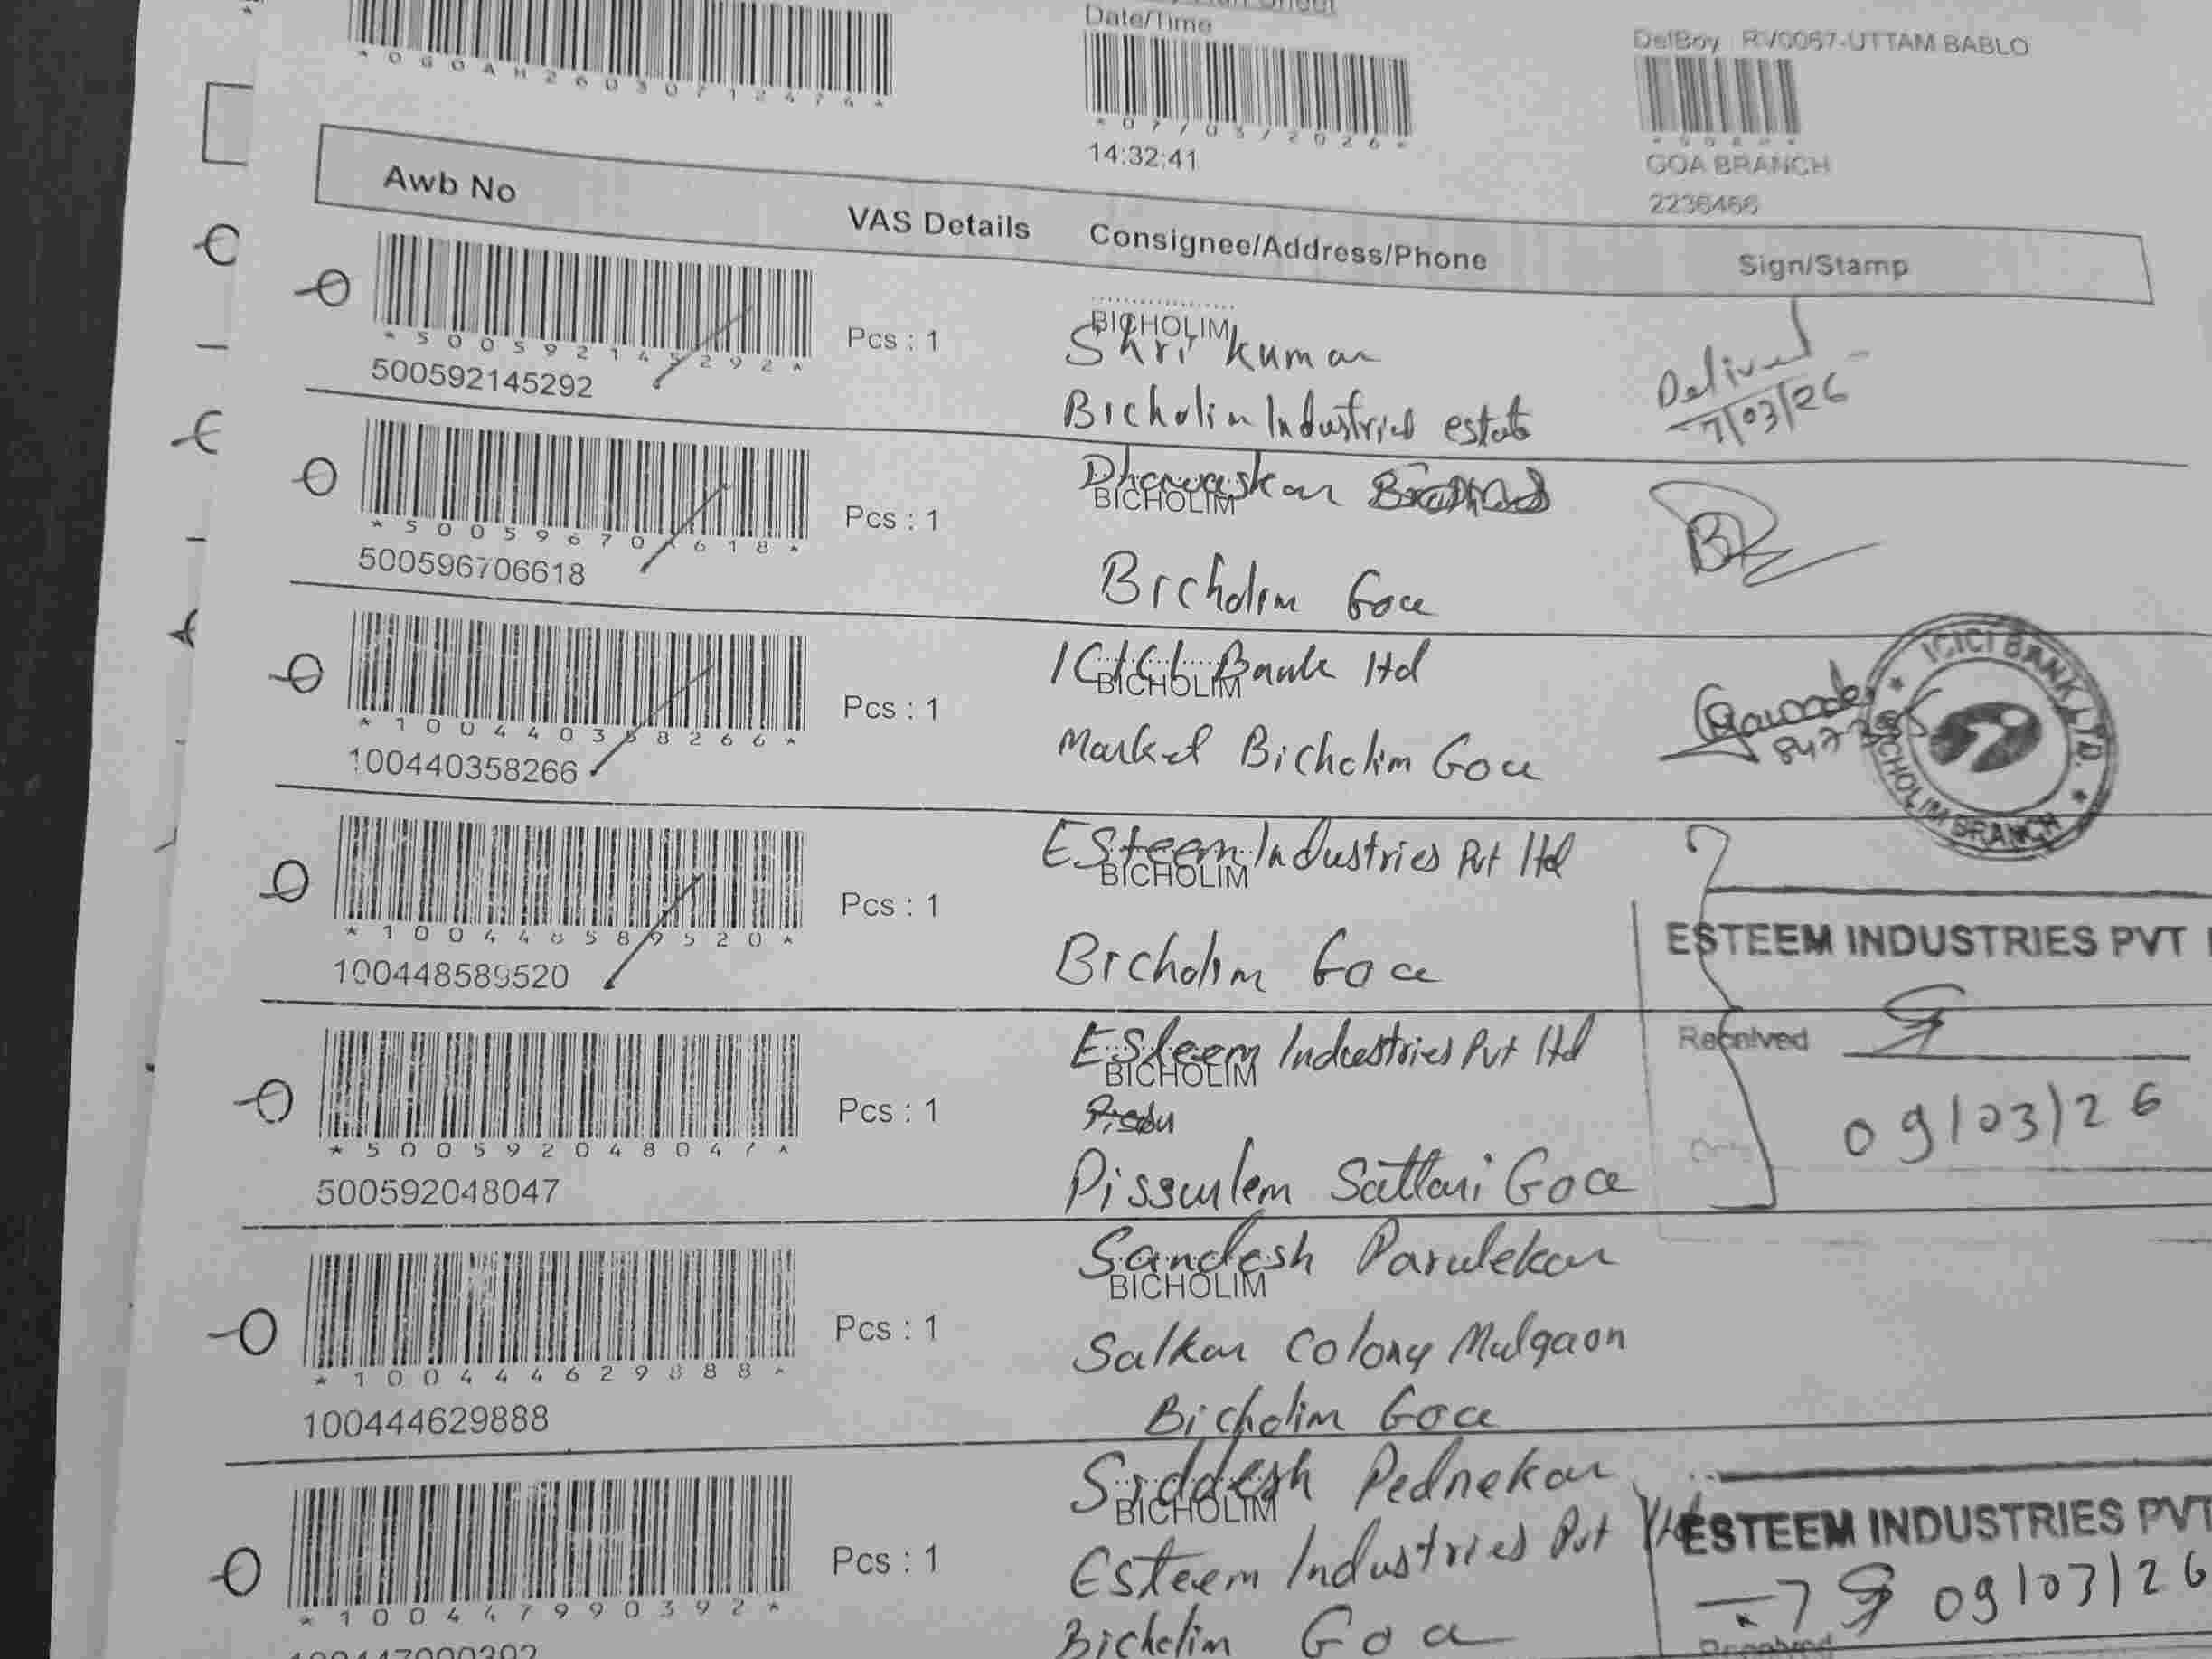 Date/Time
DelBoy RV0067-UTTAM BABLO
*0G0AH26030712474*
*07/03/2026*
14:32:41
GOA BRANCH
2236466
Awb No
VAS Details
Consignee/Address/Phone
Sign/Stamp
*500592145292*
500592145292
Pcs : 1
BICHOLIM
Shri kumar
Bicholim Industries estate
7/03/26
*500596706618*
500596706618
Pcs : 1
BICHOLIM
Bicholim Goa
*100440358266*
100440358266
Pcs : 1
ICICI Bank ltd
BICHOLIM
Market Bicholim Goa
Gawade
ICICI BANK LTD.
BICHOLIM BRANCH
*100448589520*
100448589520
Pcs : 1
Esteem Industries Pvt ltd
BICHOLIM
Bicholim Goa
ESTEEM INDUSTRIES PVT
*500592048047*
500592048047
Pcs : 1
Esteem Industries Pvt ltd
BICHOLIM
Pissurlem Sattari Goa
Received
09/03/26
*100444629888*
100444629888
Pcs : 1
Sandesh Parulekar
BICHOLIM
Salkar Colony Mulgaon
Bicholim Goa
*100447990392*
100447990392
Pcs : 1
Siddesh Pednekar
BICHOLIM
Esteem Industries Pvt ltd
Bicholim Goa
ESTEEM INDUSTRIES PVT
09/03/26
Received